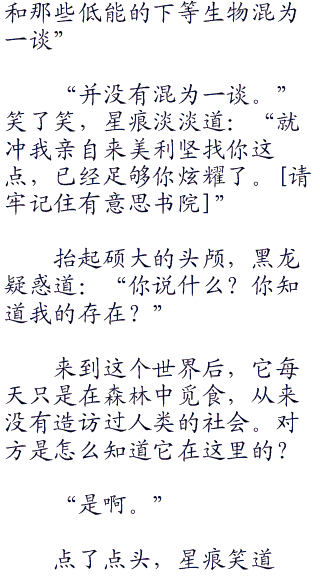 和那些低能的下等生物混为
一谈”
“并没有混为一谈。”
笑了笑，星痕淡淡道：“就
冲我亲自来美利坚找你这
点，已经足够你炫耀了。[请
牢记住有意思书院]”
抬起硕大的头颅，黑龙
疑惑道：“你说什么？你知
道我的存在？”
来到这个世界后，它每
天只是在森林中觅食，从来
没有造访过人类的社会。对
方是怎么知道它在这里的？
“是啊。”
点了点头，星痕笑道